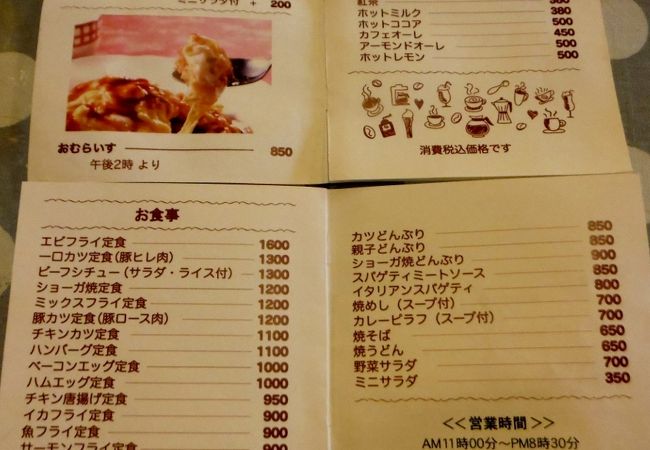 ミニサラダ付 + 200
おむらいす 850
午後2時 より
紅茶 380
ホットミルク 380
ホットココア 500
カフェオーレ 450
アーモンドオーレ 500
ホットレモン 500
消費税込価格です
お食事
エビフライ定食 1600
一口カツ定食(豚ヒレ肉) 1300
ビーフシチュー(サラダ・ライス付) 1300
ショーガ焼定食 1200
ミックスフライ定食 1200
豚カツ定食(豚ロース肉) 1200
チキンカツ定食 1100
ハンバーグ定食 1100
ベーコンエッグ定食 1000
ハムエッグ定食 1000
チキン唐揚げ定食 950
イカフライ定食 900
魚フライ定食 900
サーモンフライ定食 900
カツどんぶり 850
親子どんぶり 850
ショーガ焼どんぶり 900
スパゲティミートソース 850
イタリアンスパゲティ 800
焼めし(スープ付) 700
カレーピラフ(スープ付) 700
焼そば 650
焼うどん 650
野菜サラダ 700
ミニサラダ 350
<<営業時間>>
AM11時00分〜PM8時30分